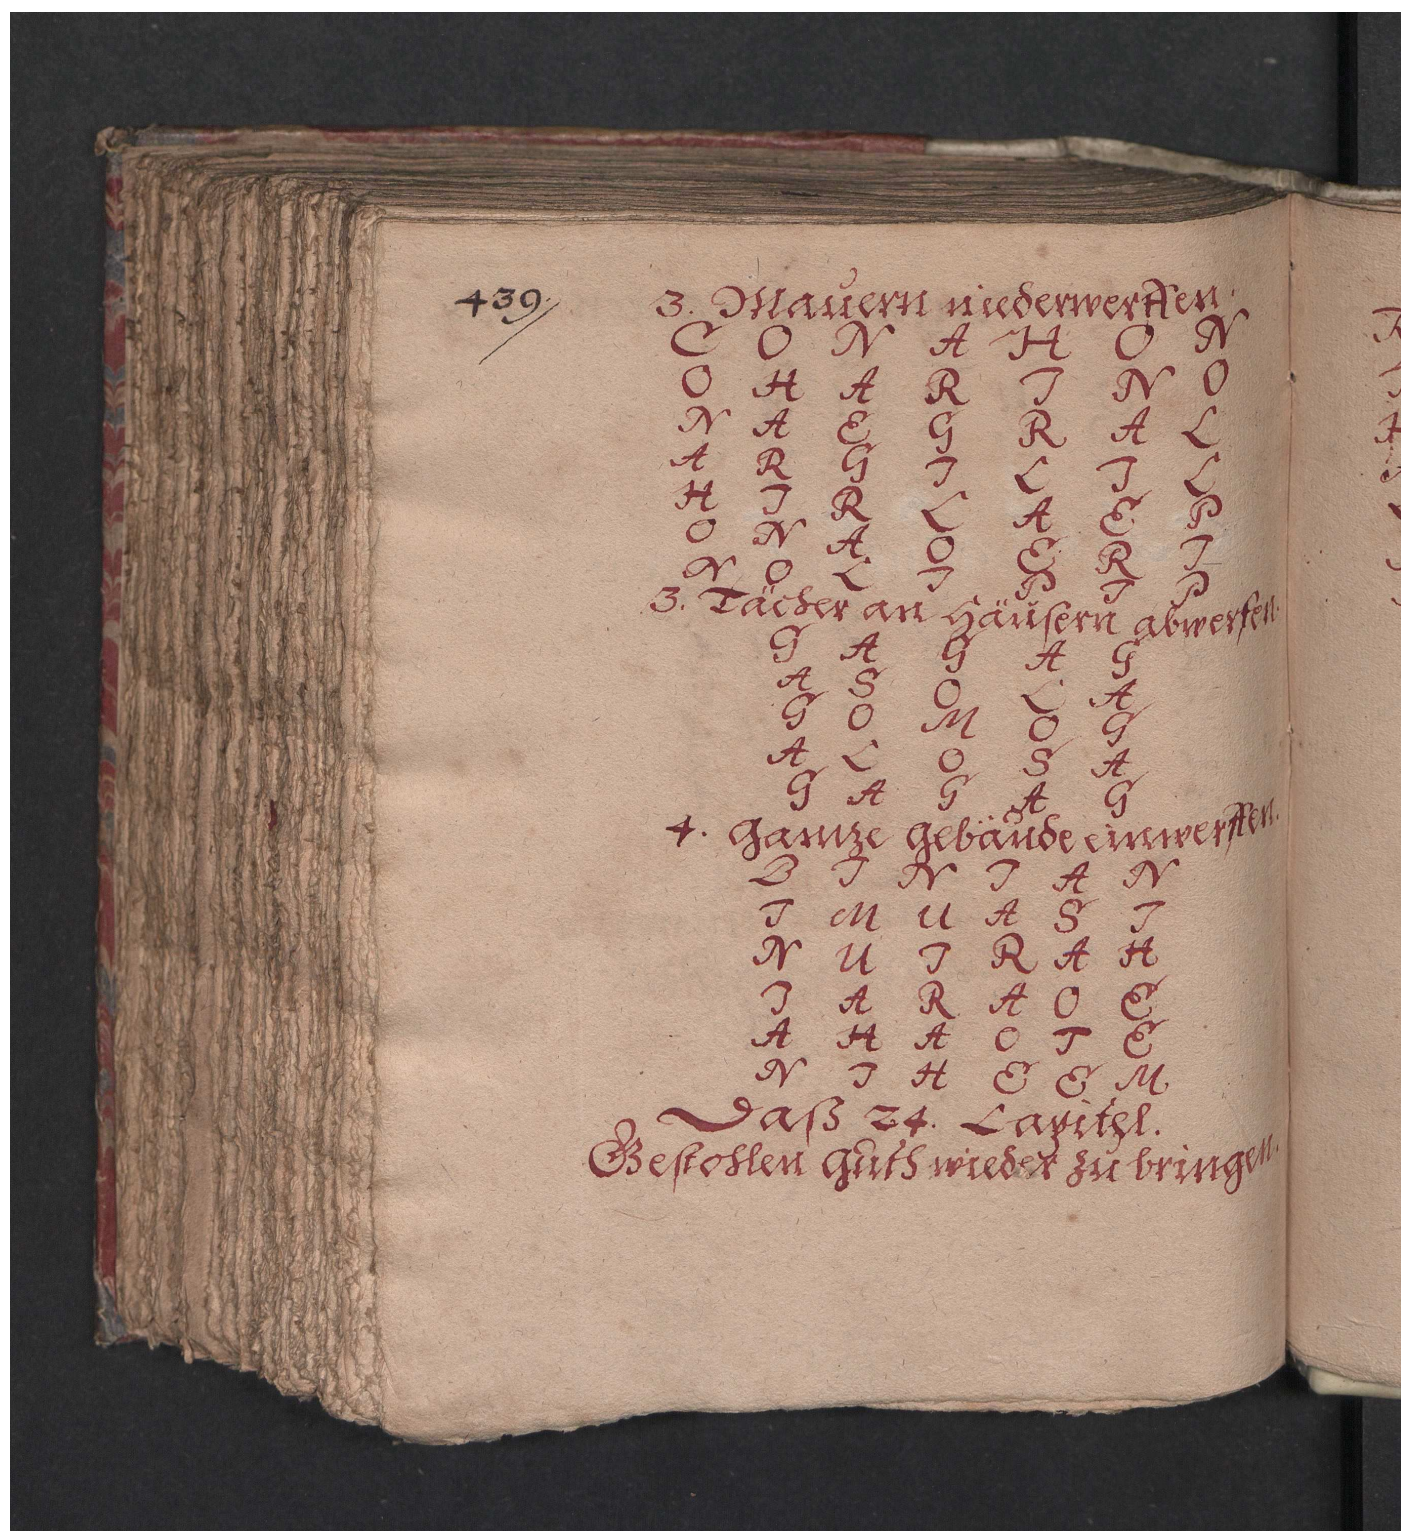 439.
3. Mauern niederwerffen.
C O N A H O N
O H A R I N O
N A E G R A L
A R G I L I L
H I R L A E P
O N A O E R I
N O L I P I P
3. Tächer an Häusern abwerfen.
G A G A G
A S O L A
G O M O G
A L O S A
G A G A G
4. Gantze Gebäude einwerffen.
B I N I A N
I M U A S I
N U I R A H
I A R A O E
A H A O T E
N I H E E M.
Daß 24. Capitel.
Gestohlen Guth wieder zu bringen.